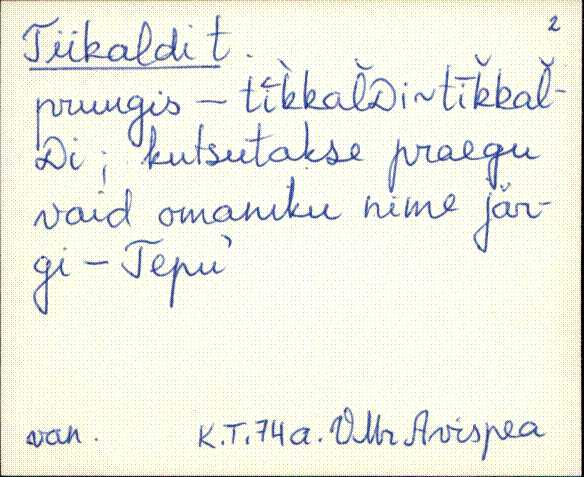 2
Tiikaldi t.
pruugis – tīk̆kal̆Di ~ tīk̆kal̆-
Di; kutsutakse praegu
vaid omaniku nime jär-
gi – Tepu'
van. K.T. 74 a. VMr Avispea